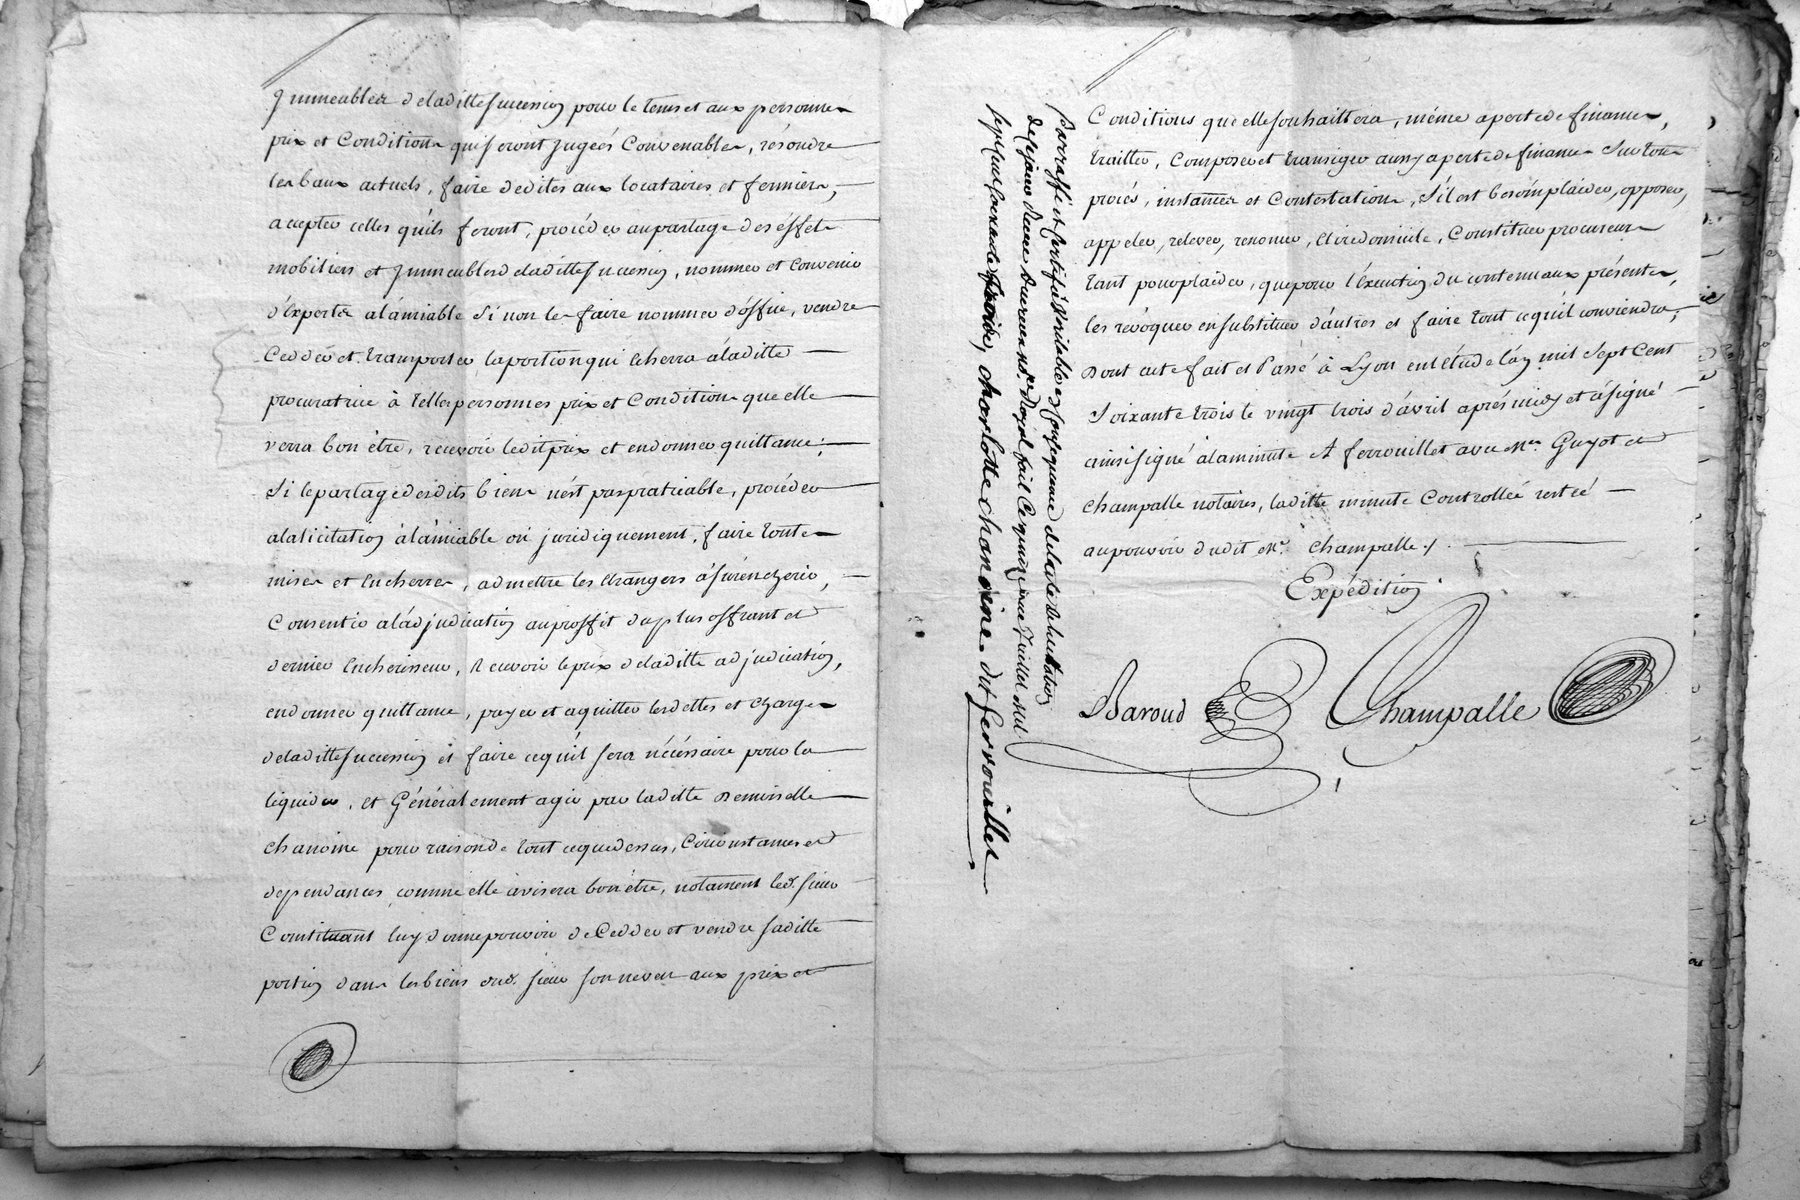 Immeubles de laditte succession pour le tems et aux personnes
prix et Conditions qui seront jugées Convenables, résoudre
les baux actuels, faire dedites aux locataires et fermiers,
accepter celles qu'ils feront, procéder au partage des éffets
mobiliers et Immeubles de laditte succession, nommer et convenir
d'Experts à l'amiable Si non les faire nommer d'office, vendre
Cedder et transporter la portion qui écherra à laditte
procuratrice à telles personnes prix et Conditions que elle
verra bon être, recevoir ledit prix et en donner quittance;
Si le partage desdits biens n'est pas pratiquable, procéder
à la licitation à l'amiable ou juridiquement, faire toutes
mises et Encherres, admettre les Etrangers à surencherir,
Consentir à l'adjudication au proffit du plus offrant et
dernier Encherisseur, Recevoir le prix de laditte adjudication,
en donner quittance, payer et aquitter les dettes et charges
de laditte succession et faire ce qu'il sera nécéssaire pour la
liquider, et Généralement agir par laditte Demoiselle
chanoine pour raison de tout ce que dessus, Circonstances et
dependances comme elle avisera bon être, notament led. sieur
Constituant luy donne pouvoir de Cedder et vendre saditte
portion dans les biens dud. sieur son neveu aux prix et
Conditions que elle souhaittera, même a perte de finances,
traitter, Composer et transiger aussy a perte de finances Sur tous
procés, instances et Contestations, S'il est besoin plaider, opposer,
appeller, relever, renoncer, Elire domicile, Constituer procureurs
tant pour plaider, que pour l'Exécution du contenu aux présentes,
les révoquer en substituer d'autres et faire tout ce qu'il conviendra;
Dont acte fait et Passé à Lyon en l'étude l'an mil Sept Cent
Soixante trois le vingt trois d'avril après midy et a signé
ainsi signé à la minute A ferrouillet avec Mes. Guyot et
Champalle notaires, laditte minute Controllée restée
au pouvoir dudit Me. Champalle./.
Expédition
Baroud Champalle
Parraffé et Certifié Véritable en Conséquence de l'acte
de ce jour Reçu Nre. Royal fait Ce quinzieme Juillet Mil
Sept Cent Soixante charlotte chanoine dit ferrouillet